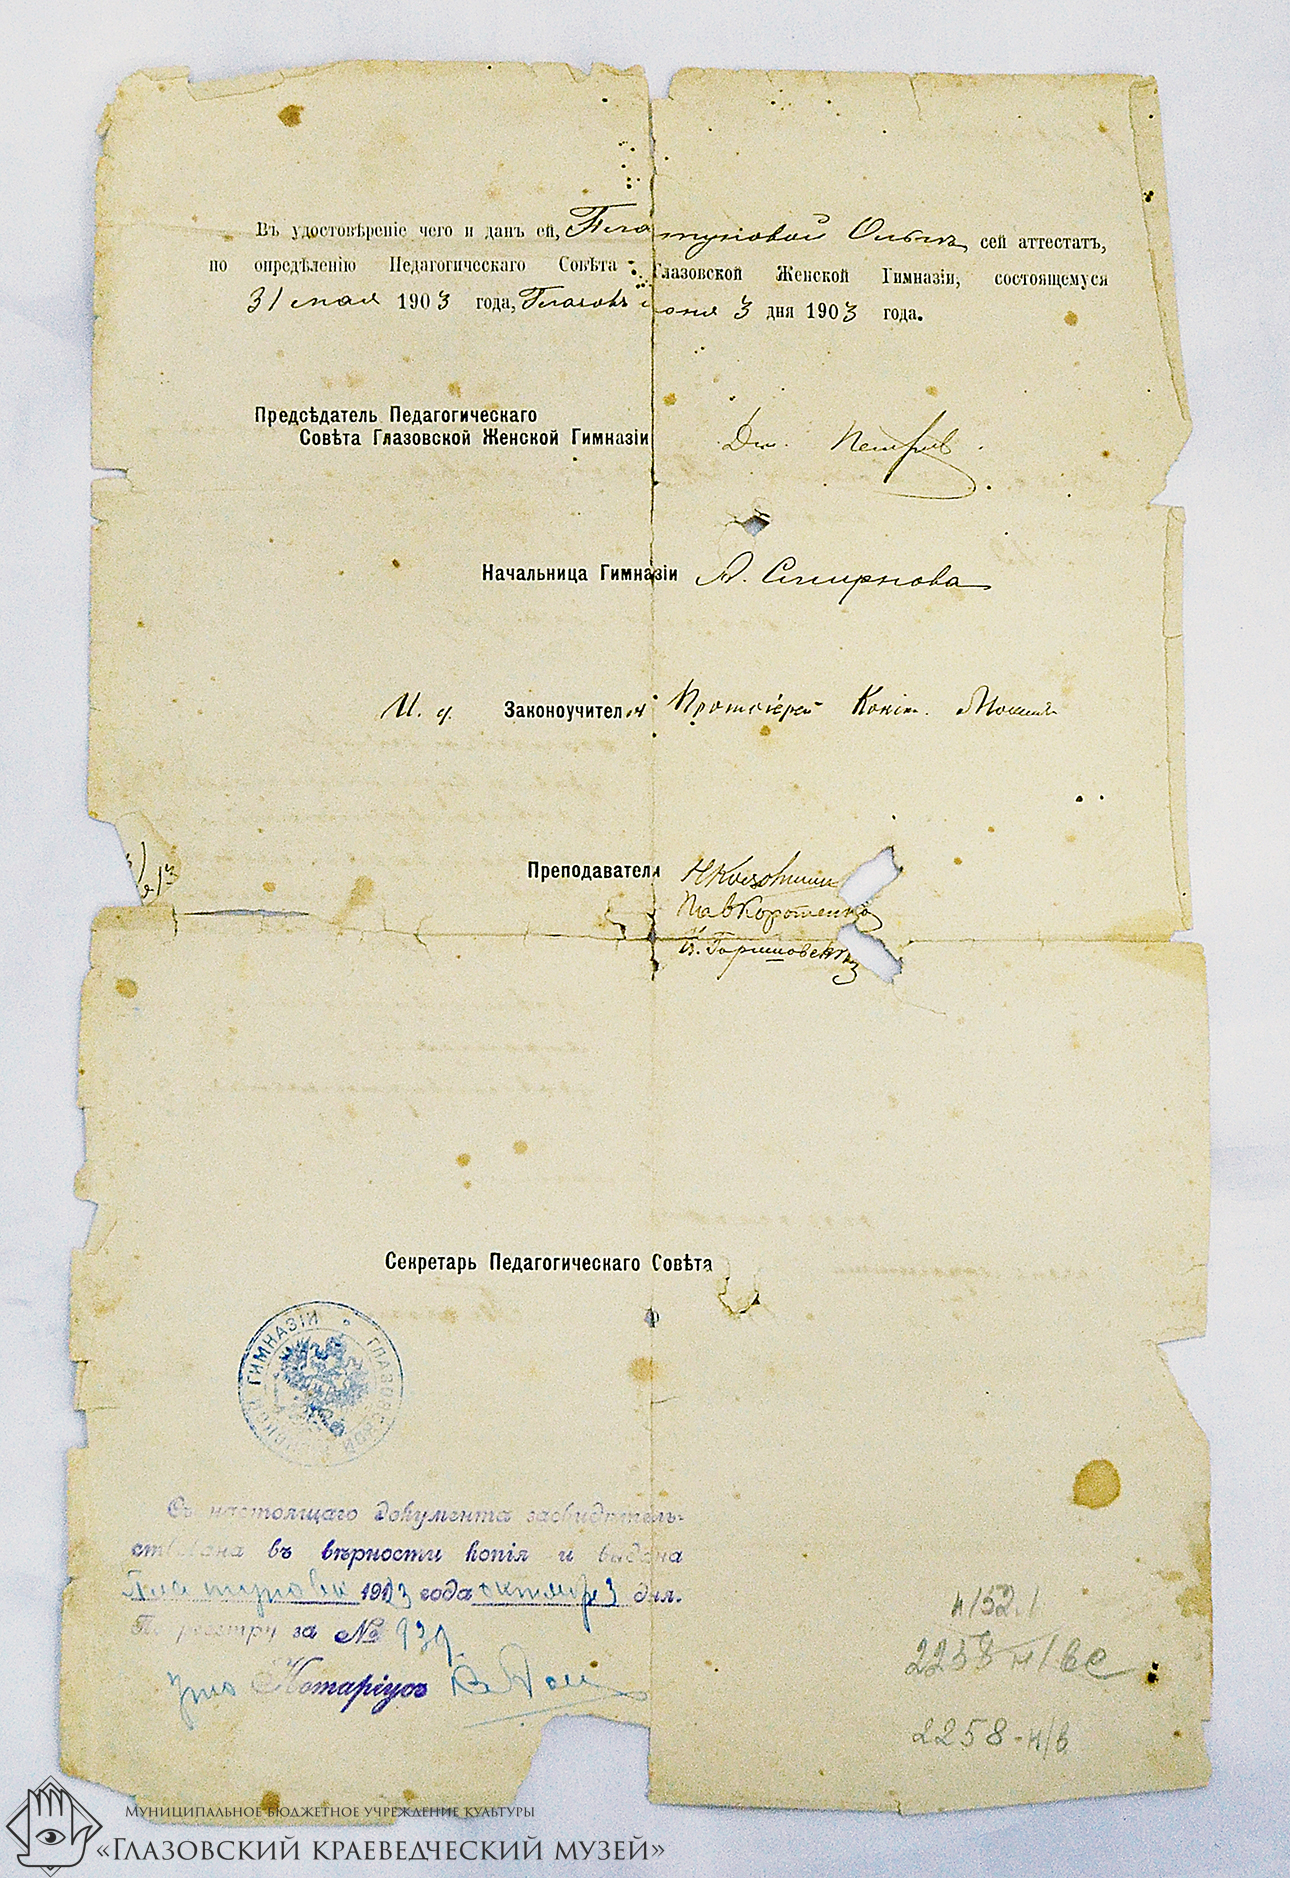 Въ удостовѣреніе чего и данъ ей, Платуновой Ольгѣ, сей аттестатъ,
по опредѣленію Педагогическаго Совѣта Глазовской Женской Гимназіи, состоящемуся
31 мая 1903 года, Глазовъ іюня 3 дня 1903 года.
Предсѣдатель Педагогическаго
Совѣта Глазовской Женской Гимназіи
Дм. Петровъ.
Начальница Гимназіи А. Смирнова
И. д. Законоучителя Протоіерей
Преподаватели
Пав Коротенко
Секретарь Педагогическаго Совѣта
ГЛАЗОВСКОЙ ЖЕНСКОЙ ГИМНАЗІИ
Съ настоящаго документа засвидѣтель-
ствована въ вѣрности копія и выдана
Платуновой 1913 года октября 3 дня.
По реестру за № 939
Нотаріусъ
н/52.1
2258 н/вс
2258-н/в
Муниципальное бюджетное учреждение культуры
«Глазовский краеведческий музей»